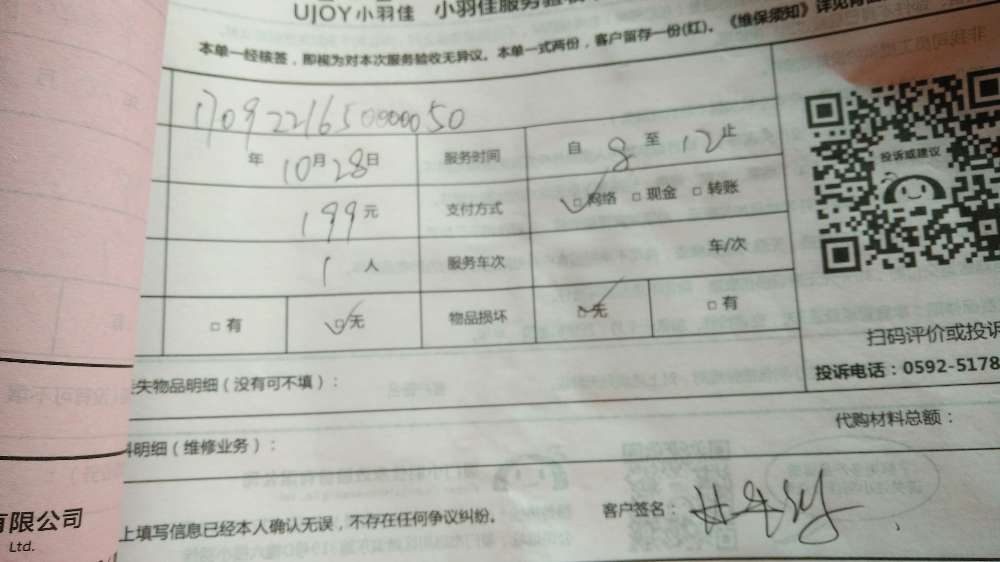 UJOY小羽佳 小羽佳服务验
本单一经核签，即视为对本次服务验收无异议。本单一式两份，客户留存一份(红)。《维保须知》详见背
年 10月28日 服务时间 自 8 至 12 止
199元 支付方式 □网络 □现金 □转账
1 人 服务车次 车/次
□有 □无 物品损坏 □无 □有
投诉或建议
扫码评价或投诉
投诉电话：0592-5178
失物品明细（没有可不填）：
代购材料总额：
料明细（维修业务）：
上填写信息已经本人确认无误，不存在任何争议纠纷。
客户签名：
有限公司
Ltd.